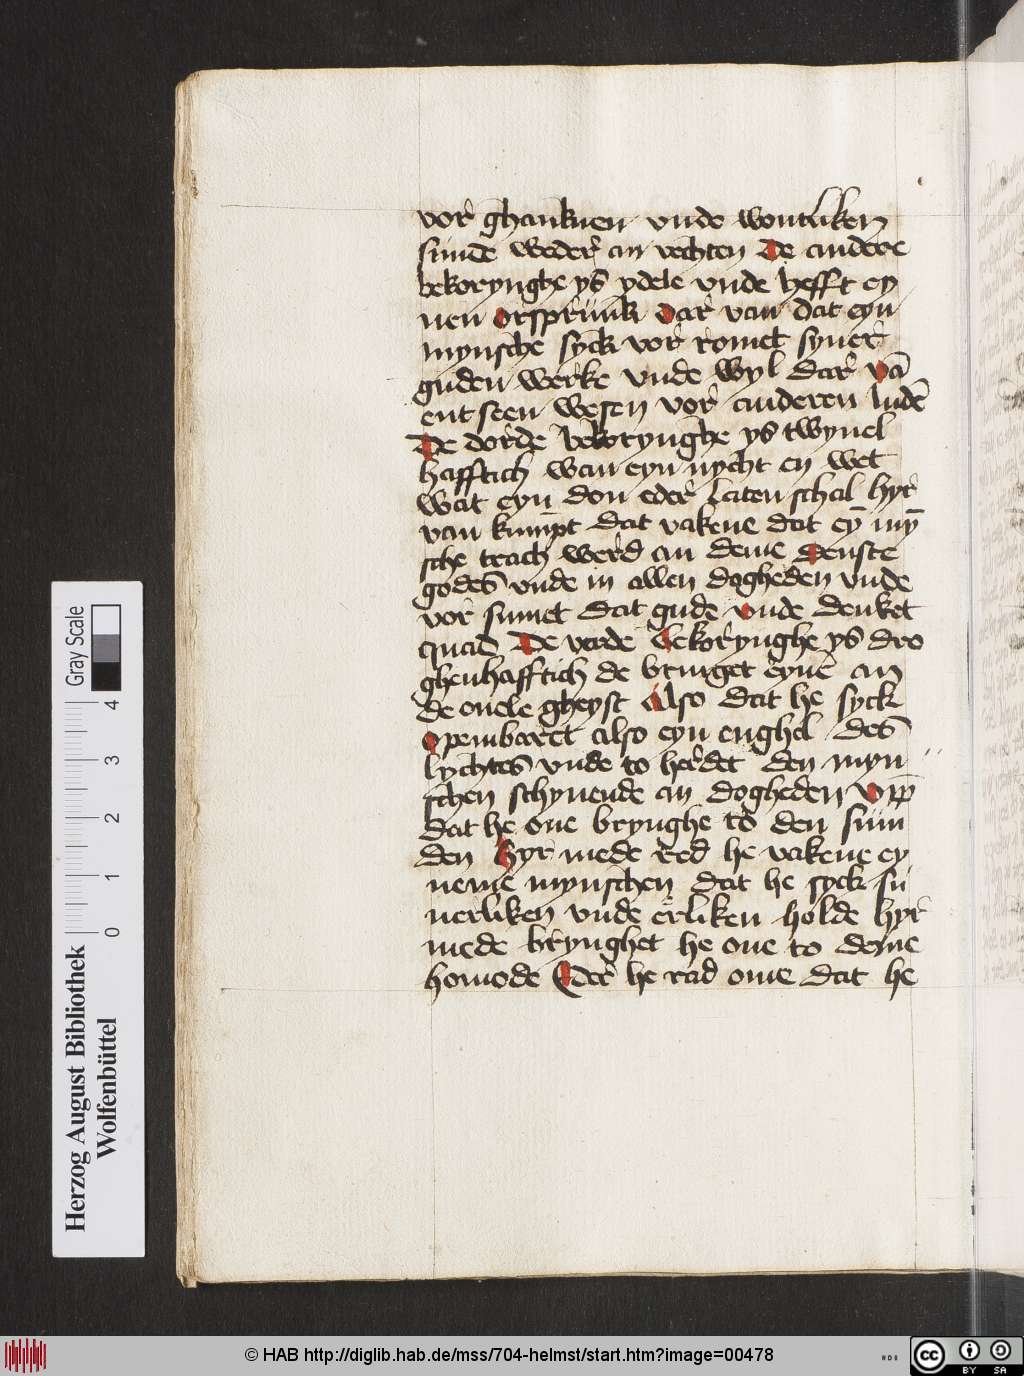 vor ghanknen vnde wontliken
sunde weder an vechten De andere
bekorynghe ys ydele vnde hefft ey
nen orsprunk Dar van dat eyn
mynsche syck vor romet syner
guden werke vnde wyl dar vā
ent seen wesen vor anderen ludē
De dorde bekorynghe ys twyuel
hafftich wan eyn nycht en wet
wat eyn don eder laten schal hyr
van kumpt dat vakene dat eȳ mȳ
sche trach werd an deme denste
godes vnde in allen dogheden vnde
vor sumet dat gude vnde denket
quad De verde bekorynghe ys dro
ghenhafftich de bringet eynē an
de ouele gheyst Also dat he syck
openbaret also eyn enghel des
lychtes vnde to herdet den myn
schen schynende an dogheden vpp
dat he one brynghe to den sun
den hyr mede red he vakene ey
neme mynschen dat he syck su
uerliken vnde erliken holde hyr
mede brynghet he one to deme
homode Eder he rad ome dat he
Herzog August Bibliothek
Wolfenbüttel
0 1 2 3 4
Gray Scale
© HAB http://diglib.hab.de/mss/704-helmst/start.htm?image=00478
HAB
cc
BY SA